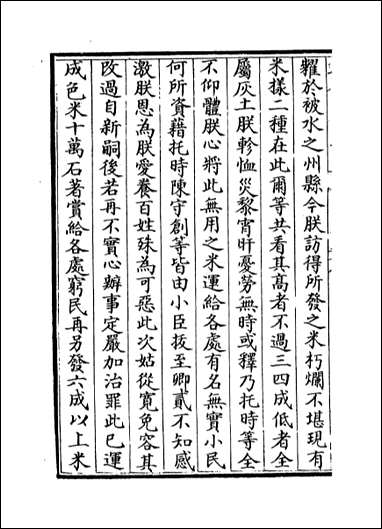 糶於被水之州縣今朕訪得所發之米朽爛不堪現有
米樣二種在此爾等共看其髙者不過三四成低者全
屬灰土朕軫恤災黎宵旰憂勞無時或釋乃托時等全
不仰體朕心將此無用之米運給各處有名無實小民
何所資藉托時陳守創等皆由小臣拔至卿貳不知感
激朕恩為朕愛養百姓殊為可惡此次姑從寛免容其
改過自新嗣後若再不實心辦事定嚴加治罪此已運
成色米十萬石著賞給各處窮民再另發六成以上米